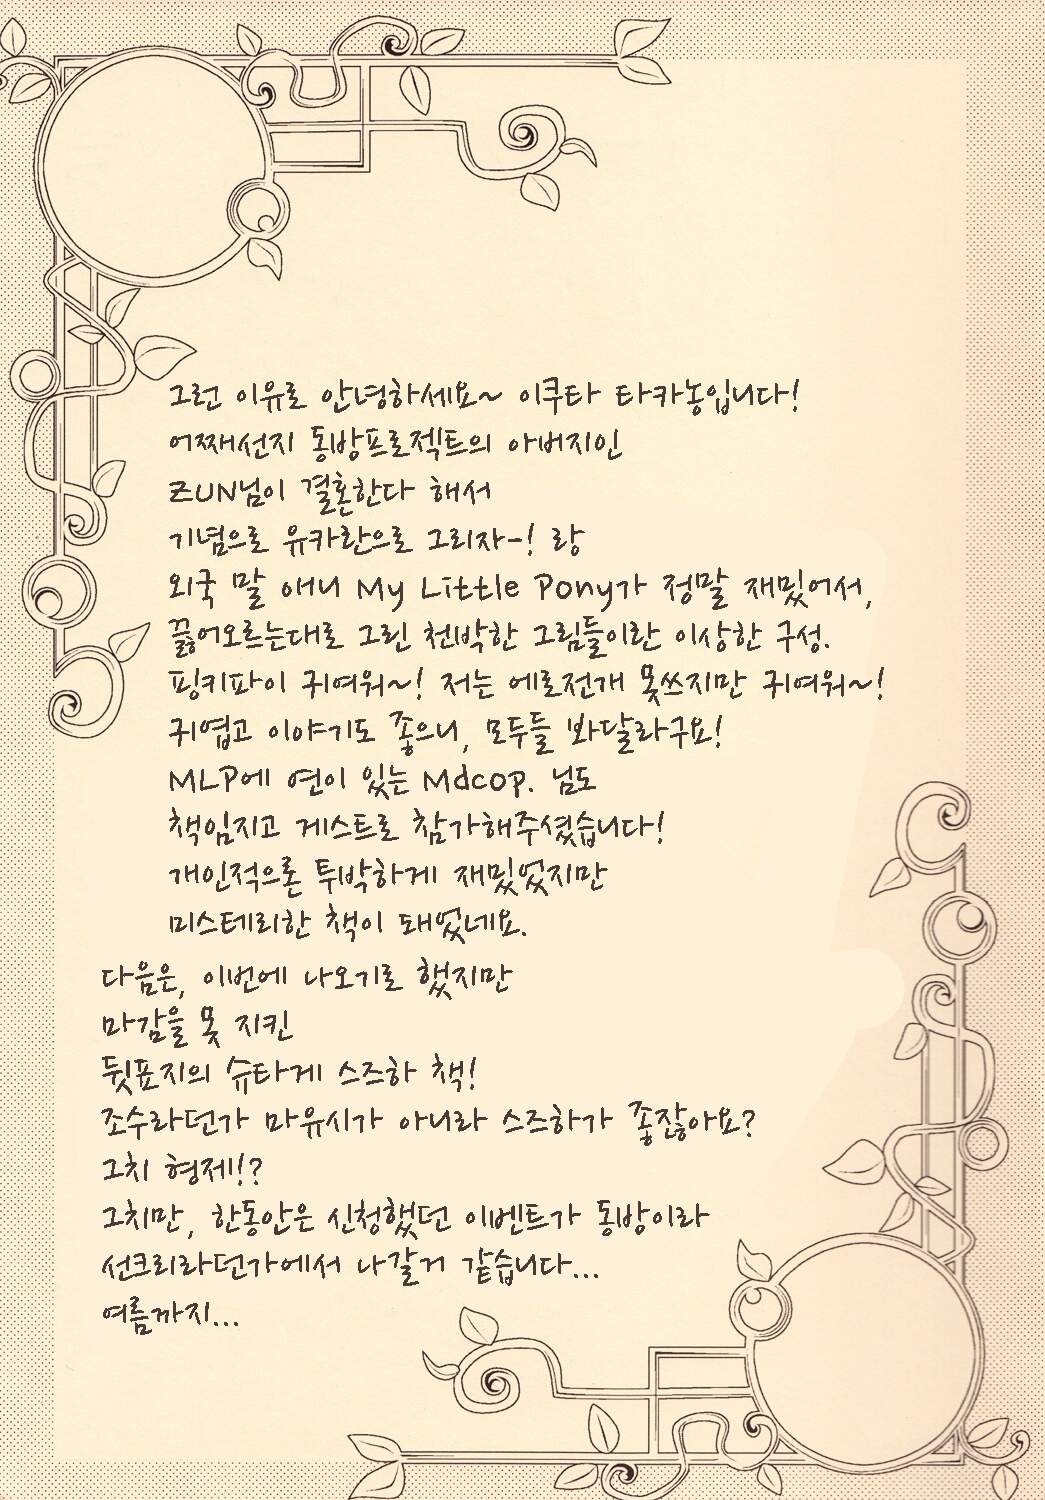 그런 이유로 안녕하세요~ 이쿠타 타카농입니다!
어째선지 동방프로젝트의 아버지인
ZUN님이 결혼한다 해서
기념으로 유카란으로 그리자-! 랑
외국 말 애니 My Little Pony가 정말 재밌어서,
끓어오르는대로 그린 천박한 그림들이란 이상한 구성.
핑키파이 귀여워~! 저는 에로전개 못쓰지만 귀여워~!
귀엽고 이야기도 좋으니, 모두들 봐달라구요!
MLP에 연이 있는 Mdcop. 님도
책임지고 게스트로 참가해주셨습니다!
개인적으론 투박하게 재밌었지만
미스테리한 책이 돼었네요.
다음은, 이번에 나오기로 했지만
마감을 못 지킨
뒷표지의 슈타게 스즈하 책!
조수라던가 마유시가 아니라 스즈하가 좋잖아요?
그치 형제!?
그치만, 한동안은 신청했던 이벤트가 동방이라
선크리라던가에서 나갈거 같습니다...
여름까지...